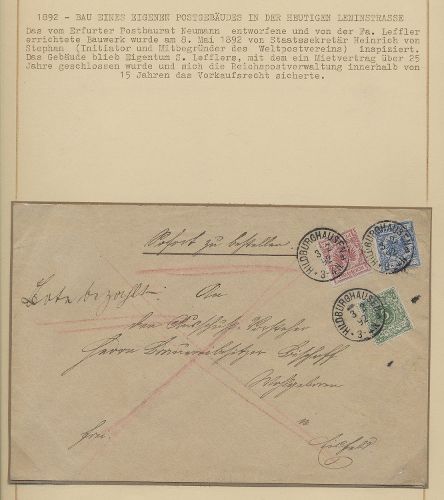 1892 - BAU EINES EIGENEN POSTGEBÄUDES IN DER HEUTIGEN LENINSTRASSE
Das vom Erfurter Postbaurat Neumann entworfene und von der Fa. Leffler
errichtete Bauwerk wurde am 8. Mai 1892 von Staatssekretär Heinrich von
Stephan (Initiator und Mitbegründer des Weltpostvereins) inspiziert.
Das Gebäude blieb Eigentum S. Lefflers, mit dem ein Mietvertrag über 25
Jahre geschlossen wurde und sich die Reichspostverwaltung innerhalb von
15 Jahren das Vorkaufsrecht sicherte.
Sofort zu bestellen.
HILDBURGHAUSEN
HILDBURGHAUSEN
HILDBURGHAUSEN
Bote bezahlt.
An
den
Herrn Brauereibesitzer Bischoff
Wohlgeboren
frei.
in
Eisfeld